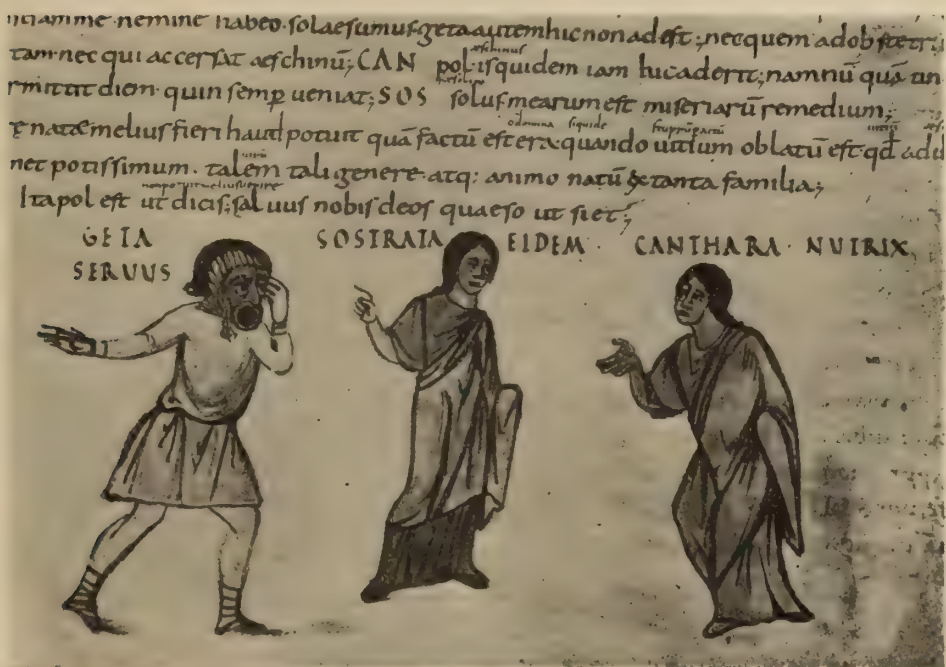 me nemine habeo. solae sumus. geta autem hic non adest; nec quem ad obstetri
aeschinus
tam nec qui accersat aeschinū; CAN pol isquidem iam hucaderit; nam nū quā un
mittit diem quin semp ueniat; SOS solus mearum est miseriarū remedium;
e nata melius fieri haud potuit quā factū est era. quando uitium oblatū est qd
net potissimum. talem tali genere. atq: animo natū & tanta familia;
Ita pol est ut dicis; saluus nobis deos quaeso ut siet;
GETA SOSTRATA EIDEM · CANTHARA · NUTRIX
SERUUS